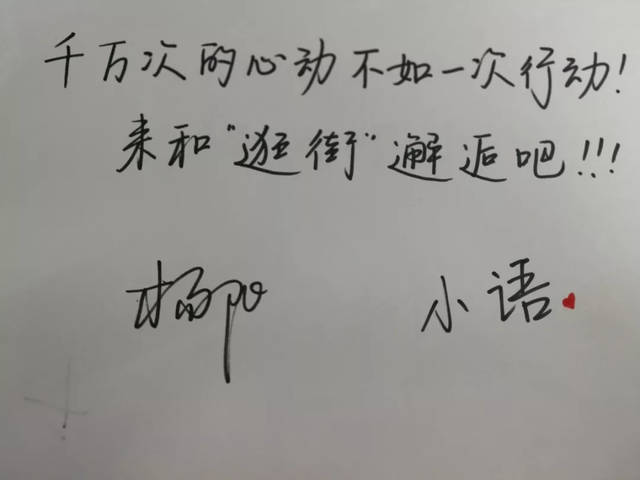 千万次的心动不如一次行动!
来和"逛街"邂逅吧!!!
小语